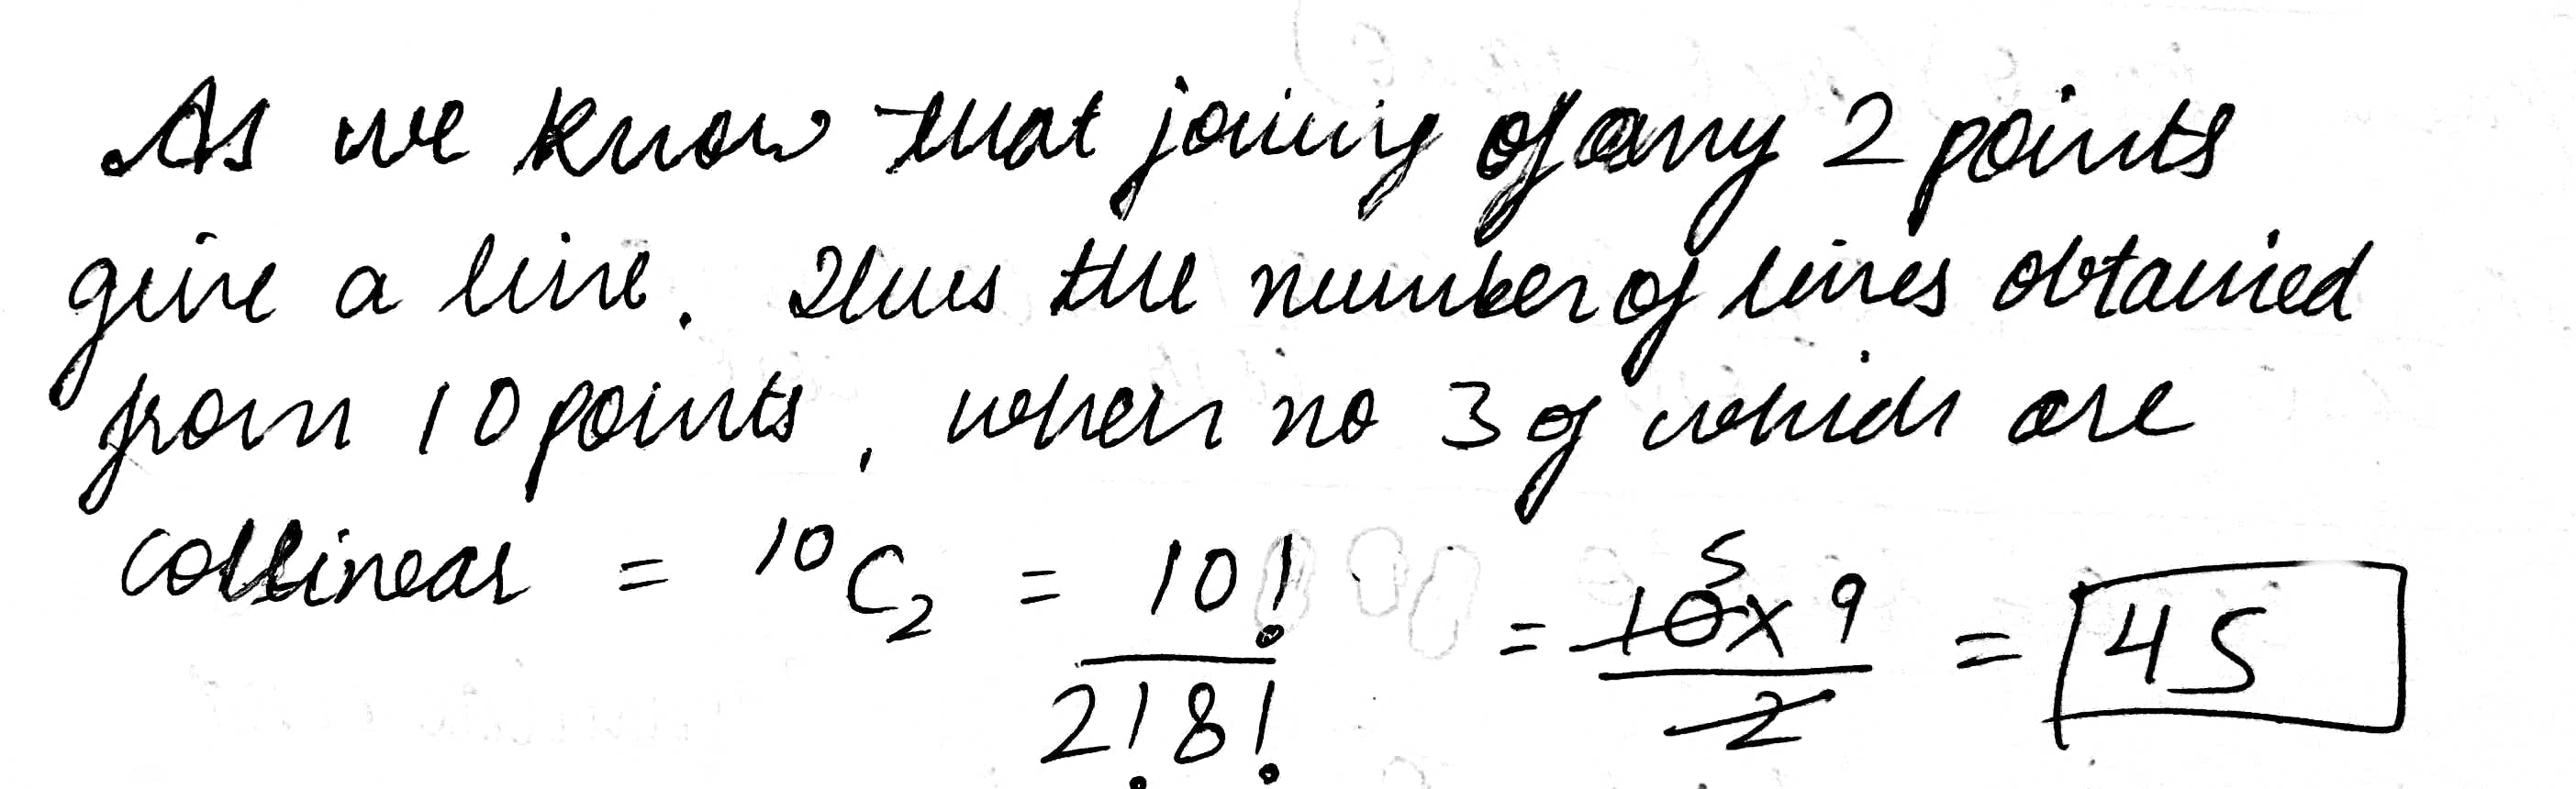 As we know that joining of any 2 points
give a line. Thus the number of lines obtained
from 10 points, when no 3 of which are
collinear = ¹⁰C₂ = 10!/2!8! = 10⁵×9/2 = 45